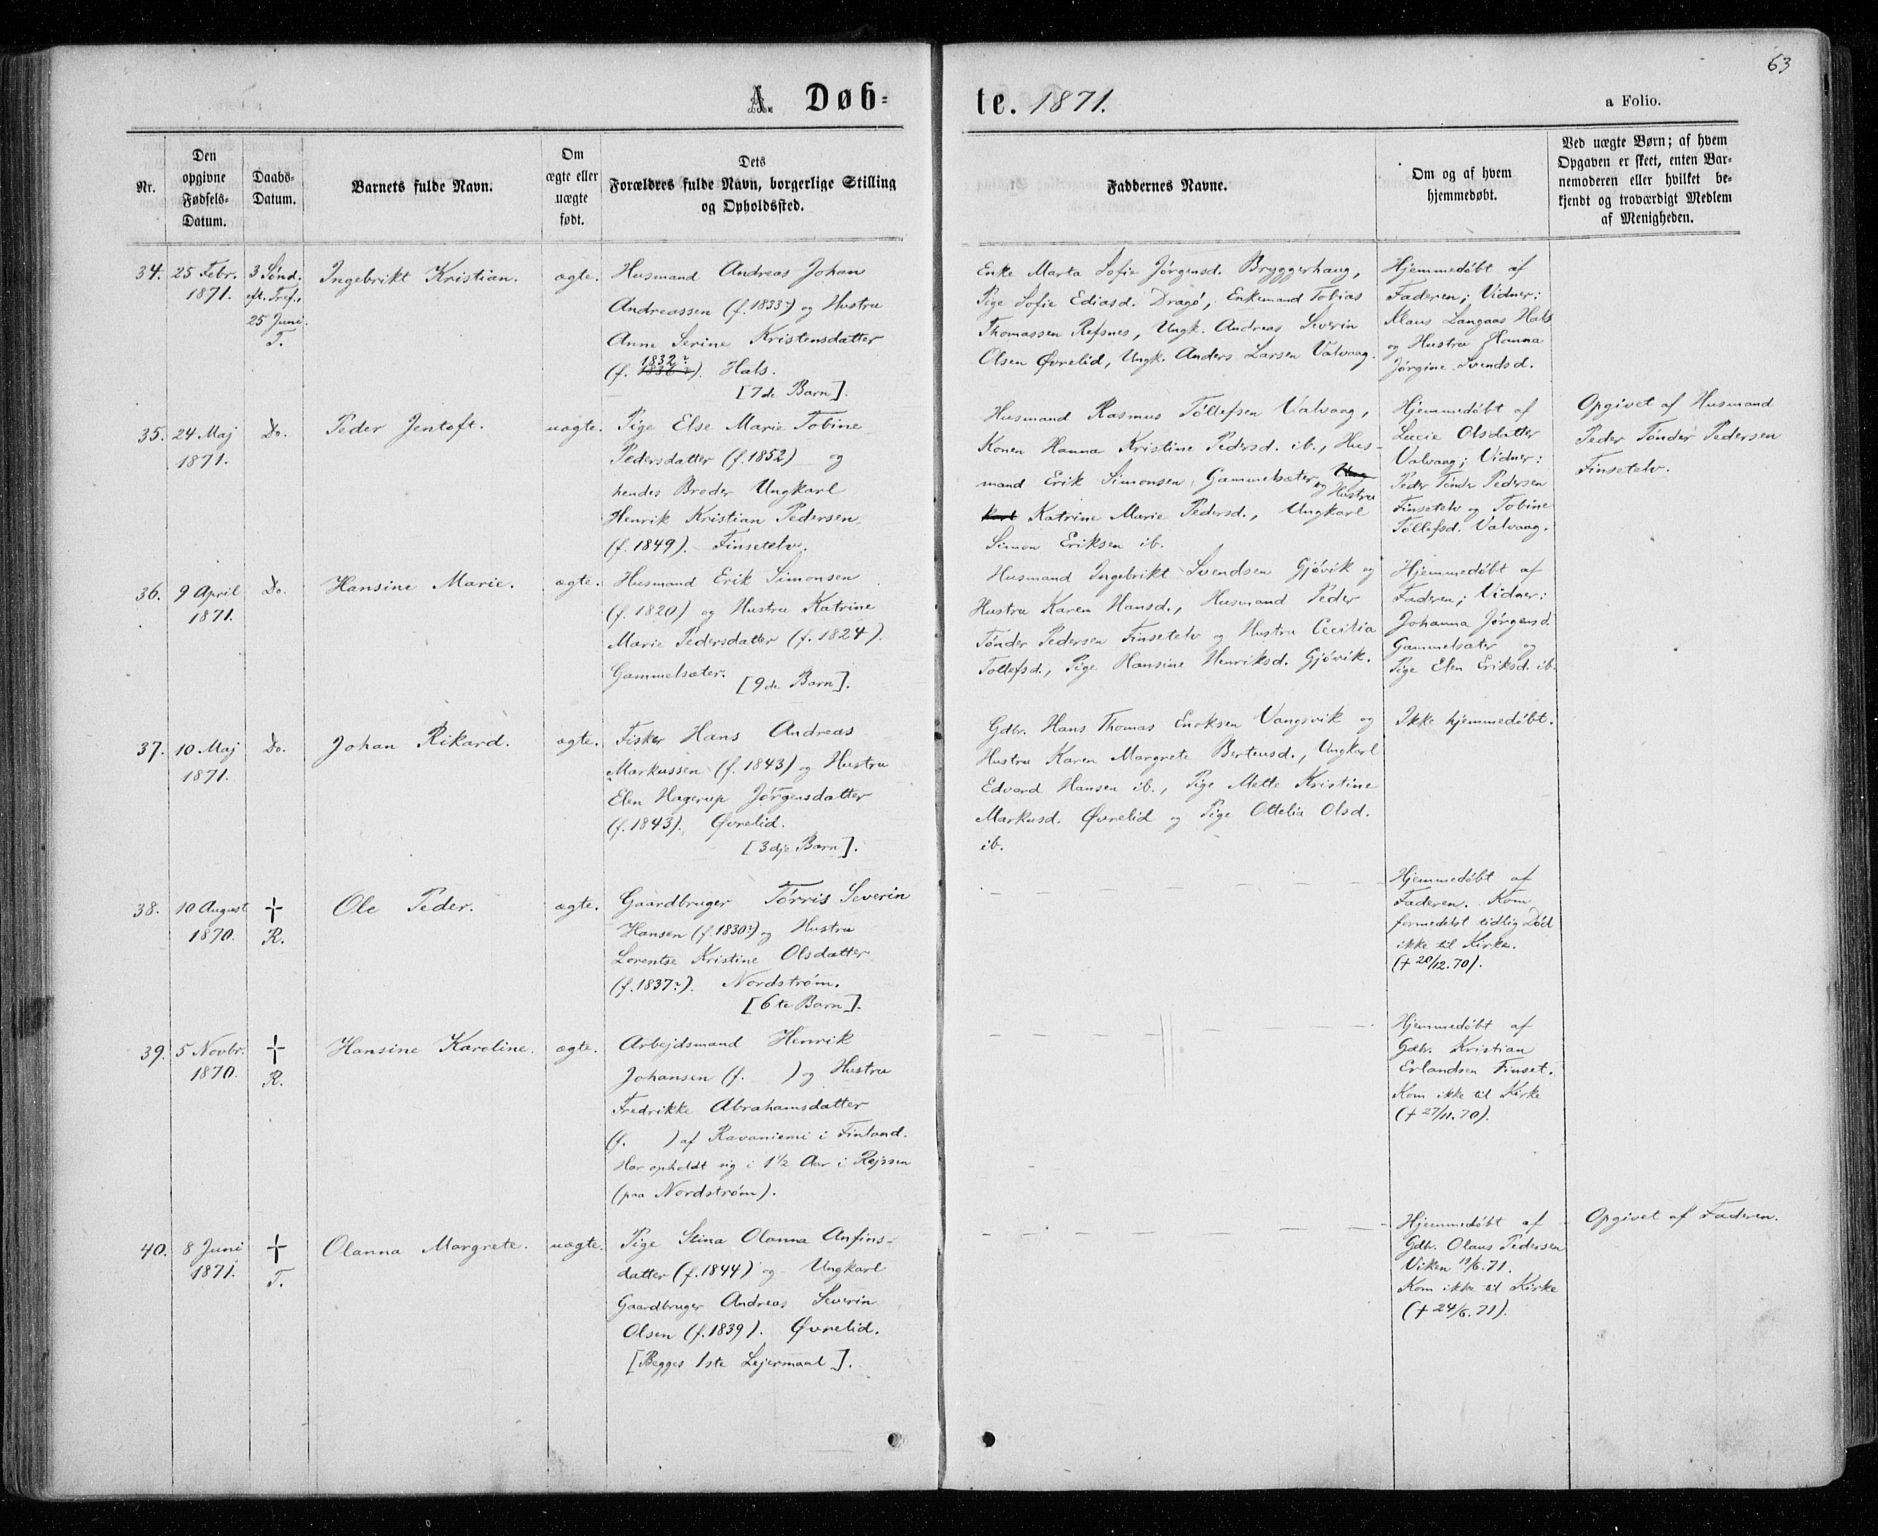 63
A. Døbte. 1871.
a Folio.
Nr.
Den opgivne Fødsels-Datum.
Daabs-Datum.
Barnets fulde Navn.
Om ægte eller uægte født.
Dets Forældres fulde Navn, borgerlige Stilling og Opholdssted.
Faddernes Navne.
Om og af hvem hjemmedøbt.
Ved uægte Børn; af hvem Opgaven er skeet, enten Barnemoderen eller hvilket bekjendt og troværdigt Medlem af Menigheden.
34.
25 Febr.
1871.
3 Sønd.
eft. Tref.,
25 Juni.
T.
Ingebrikt Kristian.
ægte.
Husmand Andreas Johan
Andreassen (f. 1833?) og Hustru
Anne Serine Kristensdatter
(f. 1832?). Hals.
[7de Barn].
Enke Marta Sofie Jørgensd. Bryggerhaug,
Pige Sofie Ediasd. Dragø, Enkemand Tobias
Thomassen Refsnes, Ungk. Andreas Severin
Olsen Øvrelid, Ungk. Anders Larsen Valvaag.
Hjemmedøbt af
Faderen; Vidner:
Klaus Langaas Hals
og Hustru Hanna
Jørgine Svendsd.
35.
24 Maj
1871.
Do.
Peder Jentoft.
uægte.
Pige Else Marie Tobine
Pedersdatter (f. 1852) og
hendes Broder Ungkarl
Henrik Kristian Pedersen
(f. 1849). Finsetelv.
Husmand Rasmus Tollefsen Valvaag,
Konen Hanna Kristine Pedersd. ib., Hus-
mand Erik Simonsen, Gammelsæter, og Hustru
Katrine Marie Pedersd., Ungkarl
Simon Eriksen ib.
Hjemmedøbt af
Lucie Olsdatter
Valvaag; Vidner:
Peder Tønder Pedersen
Finsetelv og Tobine
Tollefsd. Valvaag.
Opgivet af Husmand
Peder Tønder Pedersen
Finsetelv.
36.
9 April
1871.
Do.
Hansine Marie.
ægte.
Husmand Erik Simonsen
(f. 1820) og Hustru Katrine
Marie Pedersdatter (f. 1824).
Gammelsæter.
[9de Barn].
Husmand Ingebrikt Svendsen Gjøvik og
Hustru Karen Hansd., Husmand Peder
Tønder Pedersen Finsetelv og Hustru Cecilia
Tollefsd., Pige Hansine Henriksd. Gjøvik.
Hjemmedøbt af
Faderen; Vidner:
Johanna Jørgensd.
Gammelsæter og
Pige Elen Eriksd. ib.
37.
10 Maj
1871.
Do.
Johan Rikard.
ægte.
Fisker Hans Andreas
Markussen (f. 1843) og Hustru
Elen Hagerup Jørgensdatter
(f. 1843). Øvrelid.
[3dje Barn].
Gdbr. Hans Thomas Enoksen Vangsvik og
Hustru Karen Margrete Berteusd., Ungkarl
Edvard Hansen ib., Pige Mette Kristine
Markusd. Øvrelid og Pige Ottelia Olsd.
ib.
Ikke hjemmedøbt.
38.
10 August
1870.
†
R.
Ole Peder.
ægte.
Gaardbruger Tørris Severin
Hansen (f. 1830?) og Hustru
Lorentse Kristine Olsdatter
(f. 1837?). Nordstrøm.
[6te Barn].
Hjemmedøbt af
Faderen. Kom
formedelst tidlig Død
ikke til Kirke.
(† 20/12. 70).
39.
5 Novbr.
1870.
†
R.
Hansine Karoline.
ægte.
Arbejdsmand Henrik
Johansen (f. ) og Hustru
Fredrikke Abrahamsdatter
(f. ) af Ravaniemi i Finland.
Har opholdt sig i 1½ Aar i Rejssen
(paa Nordstrøm).
Hjemmedøbt af
Gdbr. Kristian
Erlandsen Finset.
Kom ikke til Kirke
(† 27/11. 70).
40.
8 Juni
1871.
†
T.
Olanna Margrete.
uægte.
Pige Stina Olanna Anfins-
datter (f. 1844) og Ungkarl
Gaardbruger Andreas Severin
Olsen (f. 1839). Øvrelid.
[Begges 1ste Lejermaal].
Hjemmedøbt af
Gdbr. Olaus Pedersen
Viken 11/6. 71.
Kom ikke til Kirke
(† 24/6. 71).
Opgivet af Faderen.